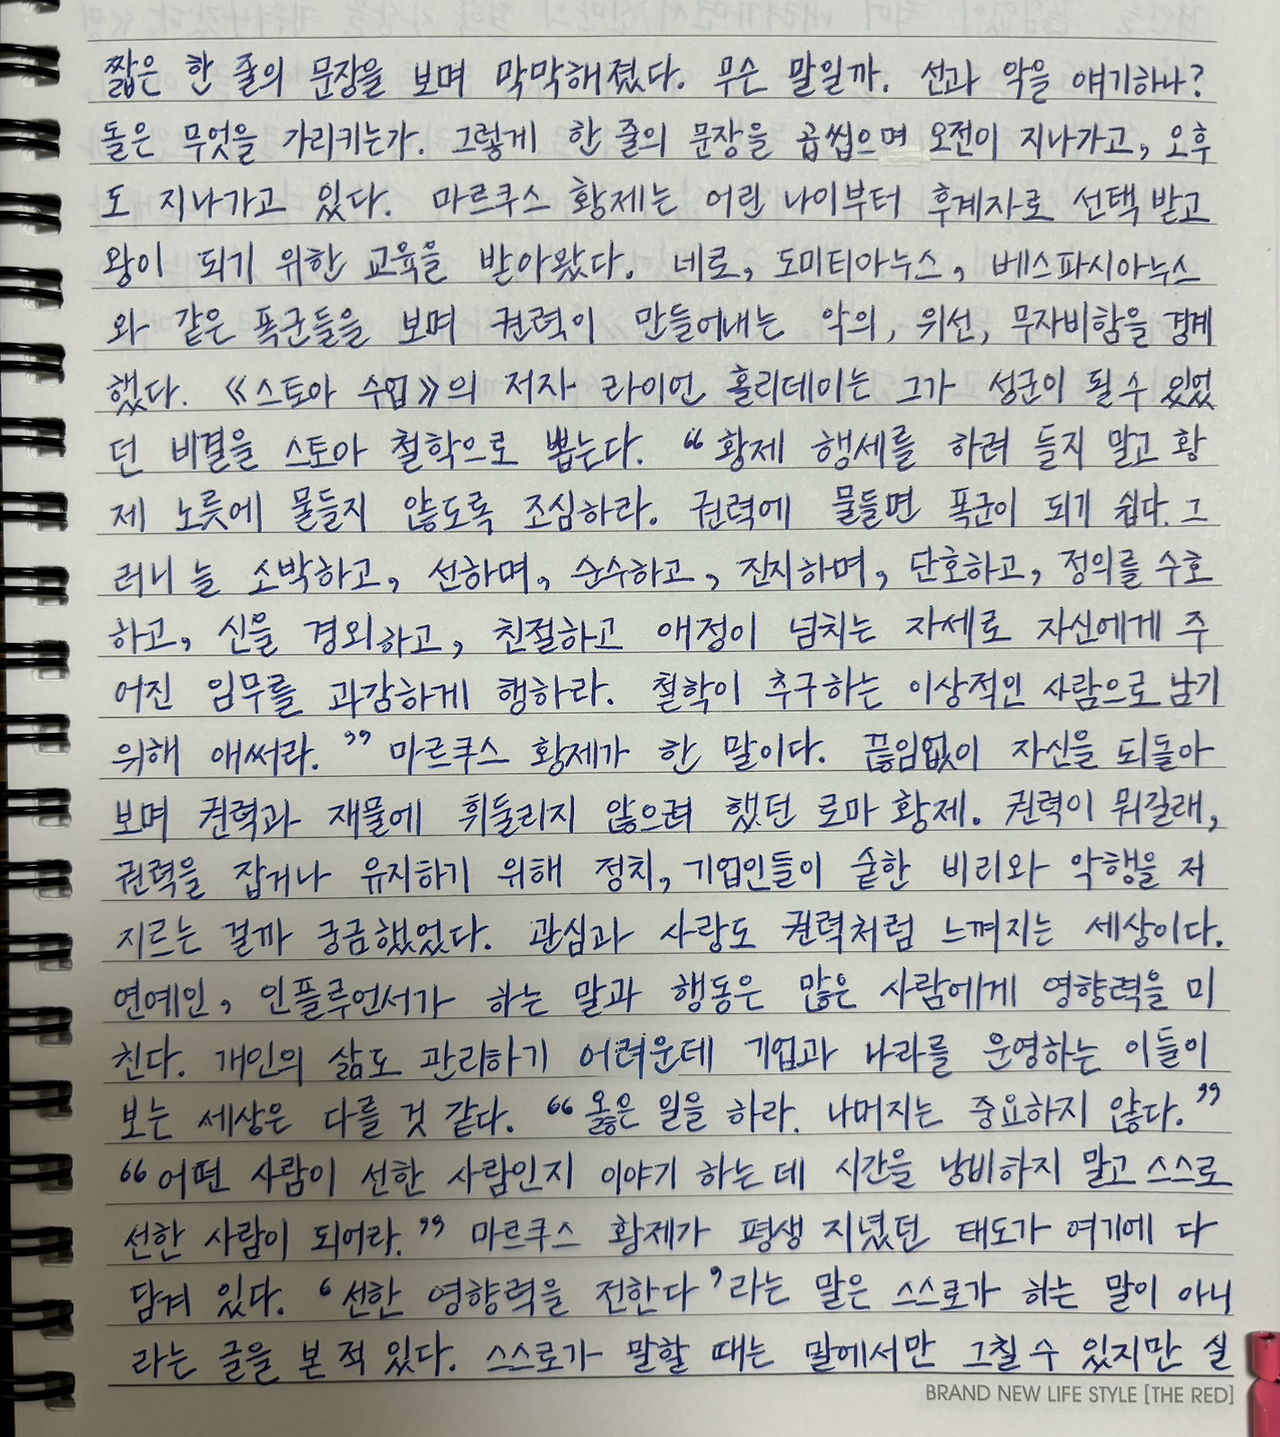 짧은 한 줄의 문장을 보며 막막해졌다. 무슨 말일까. 선과 악을 얘기하나?
돌은 무엇을 가리키는가. 그렇게 한 줄의 문장을 곱씹으며 오전이 지나가고, 오후
도 지나가고 있다. 마르쿠스 황제는 어린 나이부터 후계자로 선택 받고
왕이 되기 위한 교육을 받아왔다. 네로, 도미티아누스, 베스파시아누스
와 같은 폭군들을 보며 권력이 만들어내는 악의, 위선, 무자비함을 경계
했다. 《스토아 수업》의 저자 라이언 홀리데이는 그가 성군이 될 수 있었
던 비결을 스토아 철학으로 뽑는다. “황제 행세를 하려 들지 말고 황
제 노릇에 물들지 않도록 조심하라. 권력에 물들면 폭군이 되기 쉽다. 그
러니 늘 소박하고, 선하며, 순수하고, 진지하며, 단호하고, 정의를 수호
하고, 신을 경외하고, 친절하고 애정이 넘치는 자세로 자신에게 주
어진 임무를 과감하게 행하라. 철학이 추구하는 이상적인 사람으로 남기
위해 애써라.” 마르쿠스 황제가 한 말이다. 끊임없이 자신을 되돌아
보며 권력과 재물에 휘둘리지 않으려 했던 로마 황제. 권력이 뭐길래,
권력을 잡거나 유지하기 위해 정치, 기업인들이 숱한 비리와 악행을 저
지르는 걸까 궁금했었다. 관심과 사랑도 권력처럼 느껴지는 세상이다.
연예인, 인플루언서가 하는 말과 행동은 많은 사람에게 영향력을 미
친다. 개인의 삶도 관리하기 어려운데 기업과 나라를 운영하는 이들이
보는 세상은 다를 것 같다. “옳은 일을 하라. 나머지는 중요하지 않다.”
“어떤 사람이 선한 사람인지 이야기 하는 데 시간을 낭비하지 말고 스스로
선한 사람이 되어라.” 마르쿠스 황제가 평생 지녔던 태도가 여기에 다
담겨 있다. ‘선한 영향력을 전한다’라는 말은 스스로가 하는 말이 아니
라는 글을 본 적 있다. 스스로가 말할 때는 말에서만 그칠 수 있지만 실
BRAND NEW LIFE STYLE [THE RED]